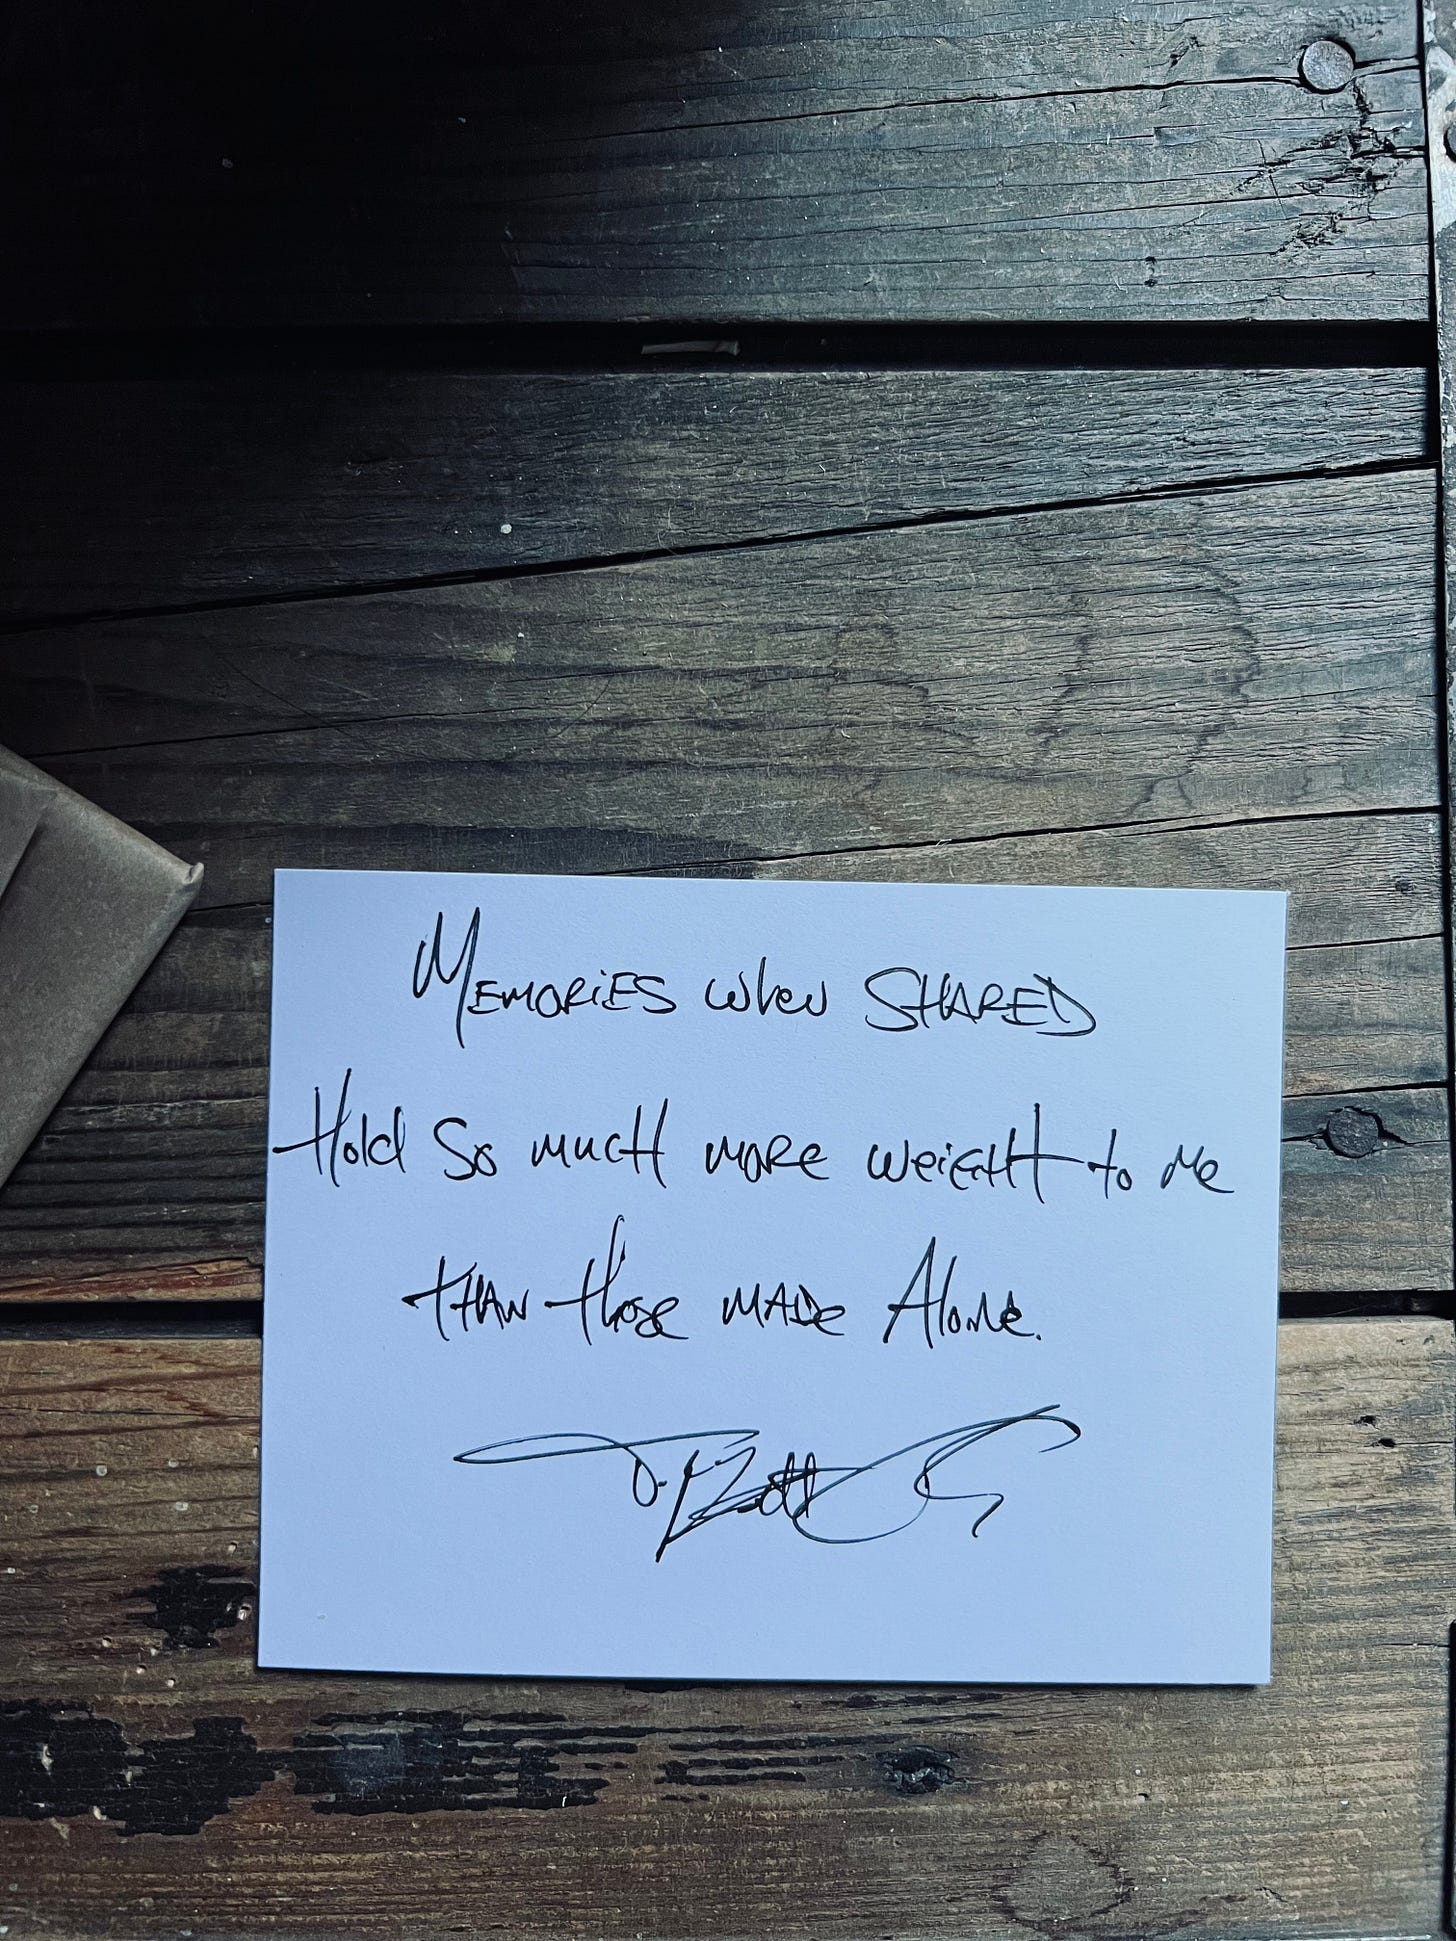 Memories when SHARED
Hold so much more weight to me
than those made Alone.